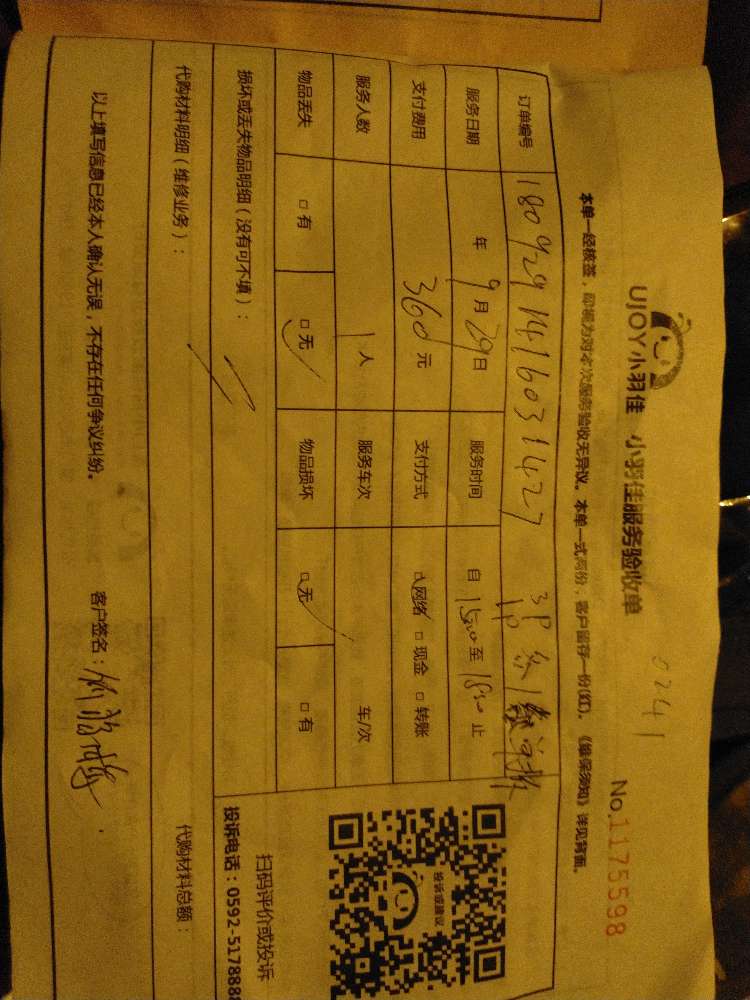 0241
UJOY小羽佳 小羽佳服务验收单
No.1175598
本单一经核签，即视为对本次服务验收无异议。本单一式两份，客户留存一份(红)。《维保须知》详见背面。
订单编号 1809291416031427 3P
1P
服务日期 年 9月29日 服务时间 自 1500 至 1800 止
支付费用 360元 支付方式 □网络 □现金 □转账
服务人数 1人 服务车次 车/次
物品丢失 □有 □无 物品损坏 □无 □有
损坏或丢失物品明细（没有可不填）：
代购材料明细（维修业务）： 代购材料总额：
以上填写信息已经本人确认无误，不存在任何争议纠纷。 客户签名：
投诉或建议
扫码评价或投诉
投诉电话：0592-5178888